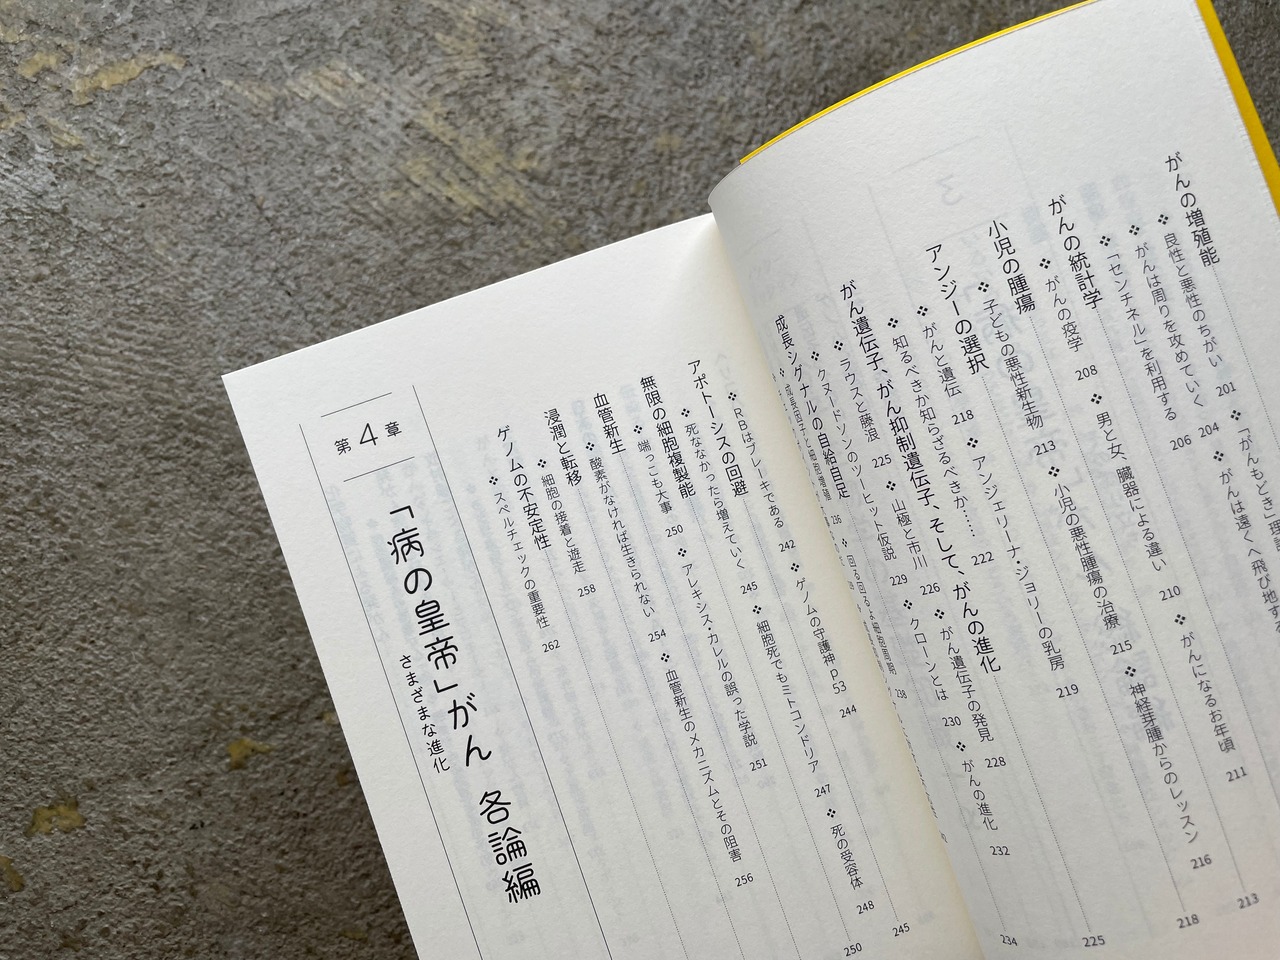 がんの増殖能
❖ 良性と悪性のちがい 201 ❖ 「がんもどき」理論
❖ がんは周りを攻めていく 204 ❖ がんは遠くへ飛び地する
❖ 「センチネル」を利用する 206
がんの統計学 213
❖ がんの疫学 208 ❖ 男と女、臓器による違い 210 ❖ がんになるお年頃 211
小児の腫瘍 218
❖ 子どもの悪性新生物 213 ❖ 小児の悪性腫瘍の治療 215 ❖ 神経芽腫からのレッスン 216
アンジーの選択 225
❖ がんと遺伝 218 ❖ アンジェリーナ・ジョリーの乳房 219
❖ 知るべきか知らざるべきか…… 222
がん遺伝子、がん抑制遺伝子、そして、がんの進化 234
❖ ラウスと藤浪 225 ❖ 山極と市川 226 ❖ がん遺伝子の発見 228
❖ クヌードソンのツーヒット仮説 229 ❖ クローンとは 230 ❖ がんの進化 232
成長シグナルの自給自足 245
❖ 成長因子と細胞増殖 236 ❖ 回る回るよ細胞周期 238
❖ RBはブレーキである 242 ❖ ゲノムの守護神p53 244
アポトーシスの回避 250
❖ 死ななかったら増えていく 245 ❖ 細胞死でもミトコンドリア 247 ❖ 死の受容体 248
無限の細胞複製能
❖ 端っこも大事 250 ❖ アレキシス・カレルの誤った学説 251
血管新生
❖ 酸素がなければ生きられない 254 ❖ 血管新生のメカニズムとその阻害 256
浸潤と転移
❖ 細胞の接着と遊走 258
ゲノムの不安定性
❖ スペルチェックの重要性 262
第4章
「病の皇帝」がん 各論編
さまざまな進化